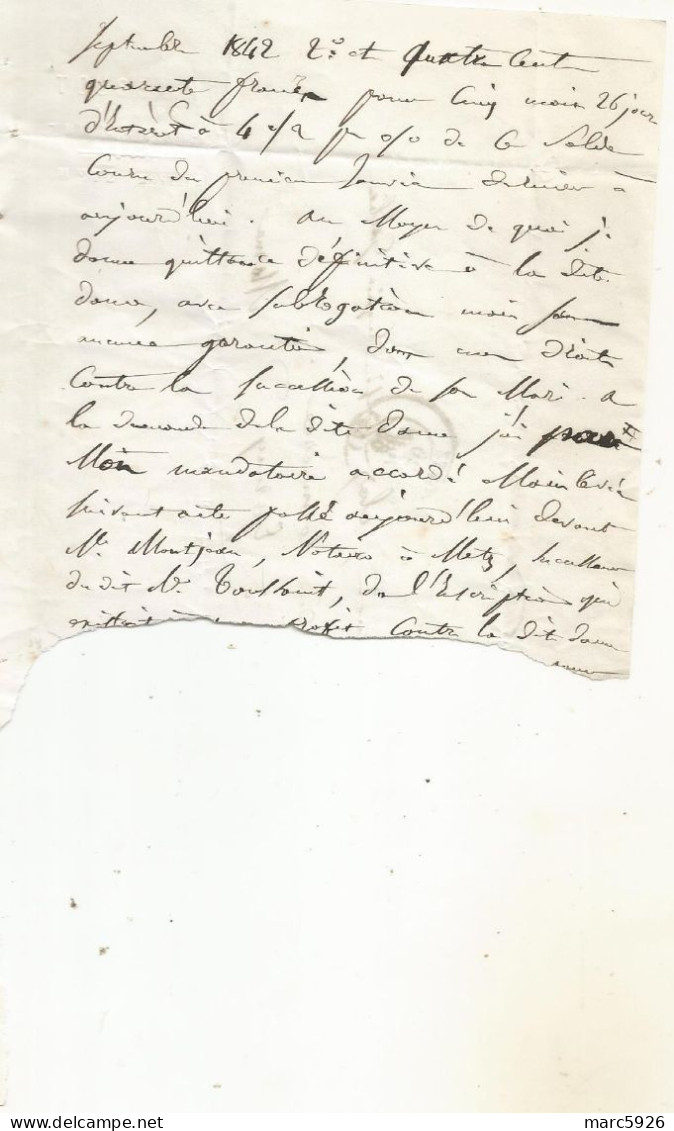 septembre 1842 2º. et quatre cent
quarante francs pour cinq mois 26 jour
d'intérêt à 4 1/2 pr o/o de ce solde
couru du premier Janvier dernier à
aujourd'hui. au Moyen de quoi je
donne quittance définitive à la dite
dame, avec subrogation mais sans
aucune garantie, dans mes droits
contre la succession de son Mari. a
la demande de la dite dame j'ai par
Mon mandataire accordé Mainlevée
suivant acte passé aujourd'hui devant
Me. Montjean, Notaire à Metz, successeur
du dit Me. Toussaint, de l'Inscription qui
existait à profit contre la dite dame
marc5926